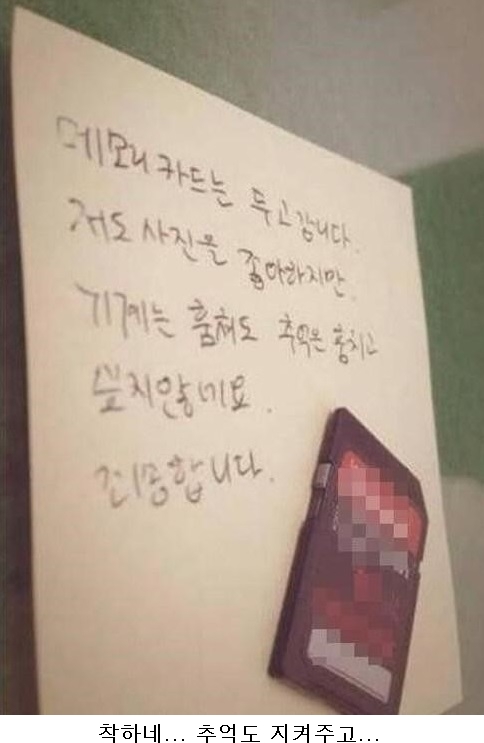 메모리 카드는 두고 갑니다.
저도 사진을 좋아하지만.
기계는 훔쳐도 추억은 훔치고
싶지않네요.
죄송합니다.
착하네... 추억도 지켜주고...